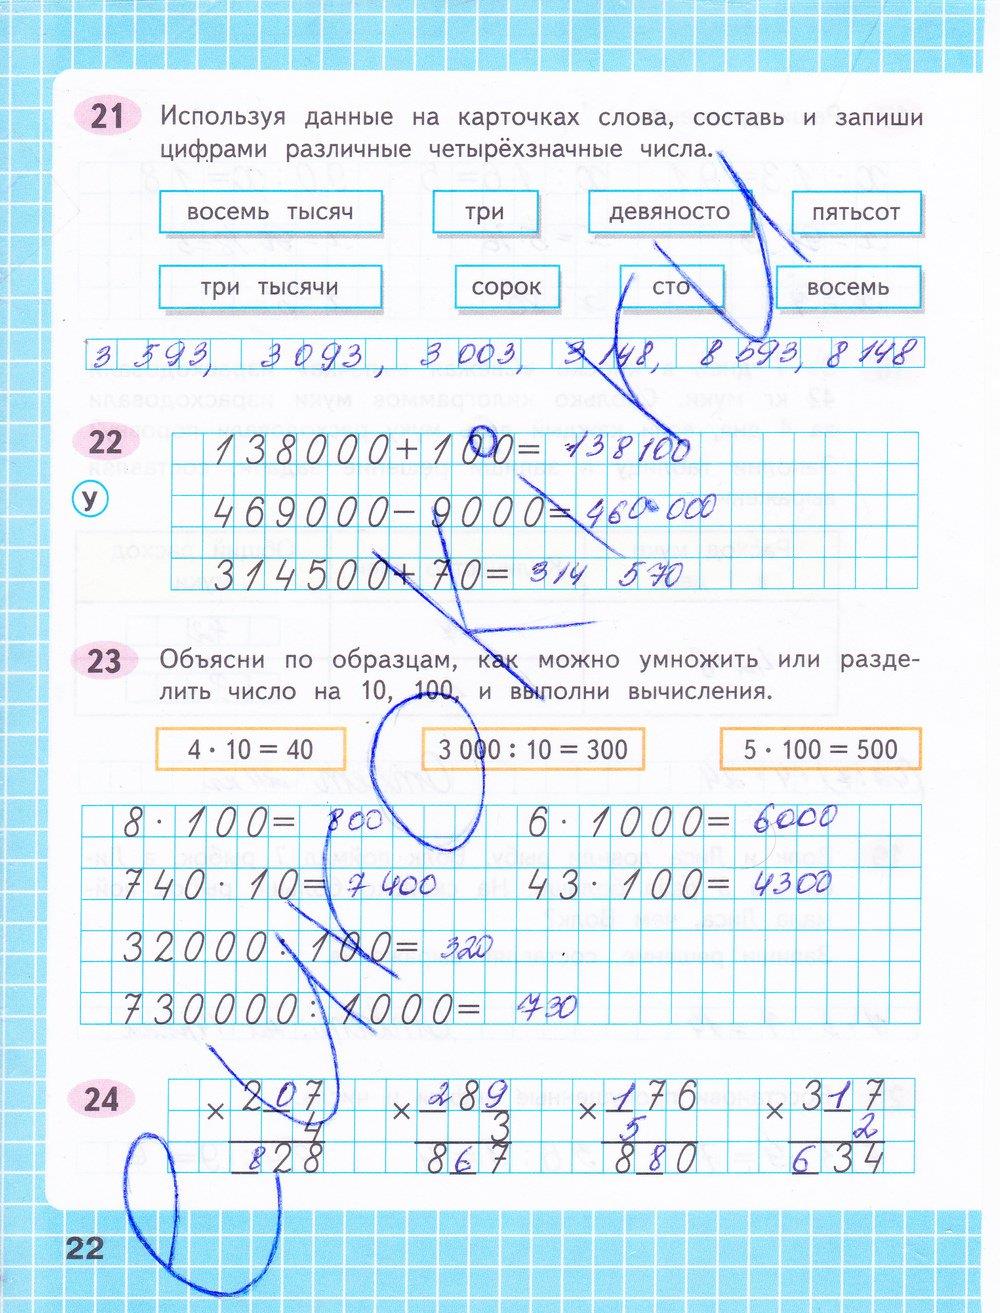 21 Используя данные на карточках слова, составь и запиши
цифрами различные четырёхзначные числа.
восемь тысяч три девяносто пятьсот
три тысячи сорок сто восемь
3 593, 3 093, 3 003, 3 148, 8 593, 8 148
22 138000+100= 138100
У 469000-9000= 460 000
314500+70= 314 570
23 Объясни по образцам, как можно умножить или разде-
лить число на 10, 100, и выполни вычисления.
4 · 10 = 40 3 000 : 10 = 300 5 · 100 = 500
8 · 100= 800 6 · 1000= 6000
740 · 10= 7 400 43 · 100= 4300
32000 : 100= 320
730000 : 1000= 730
24 × 207 × 289 × 176 × 317
4 3 5 2
828 867 880 634
22